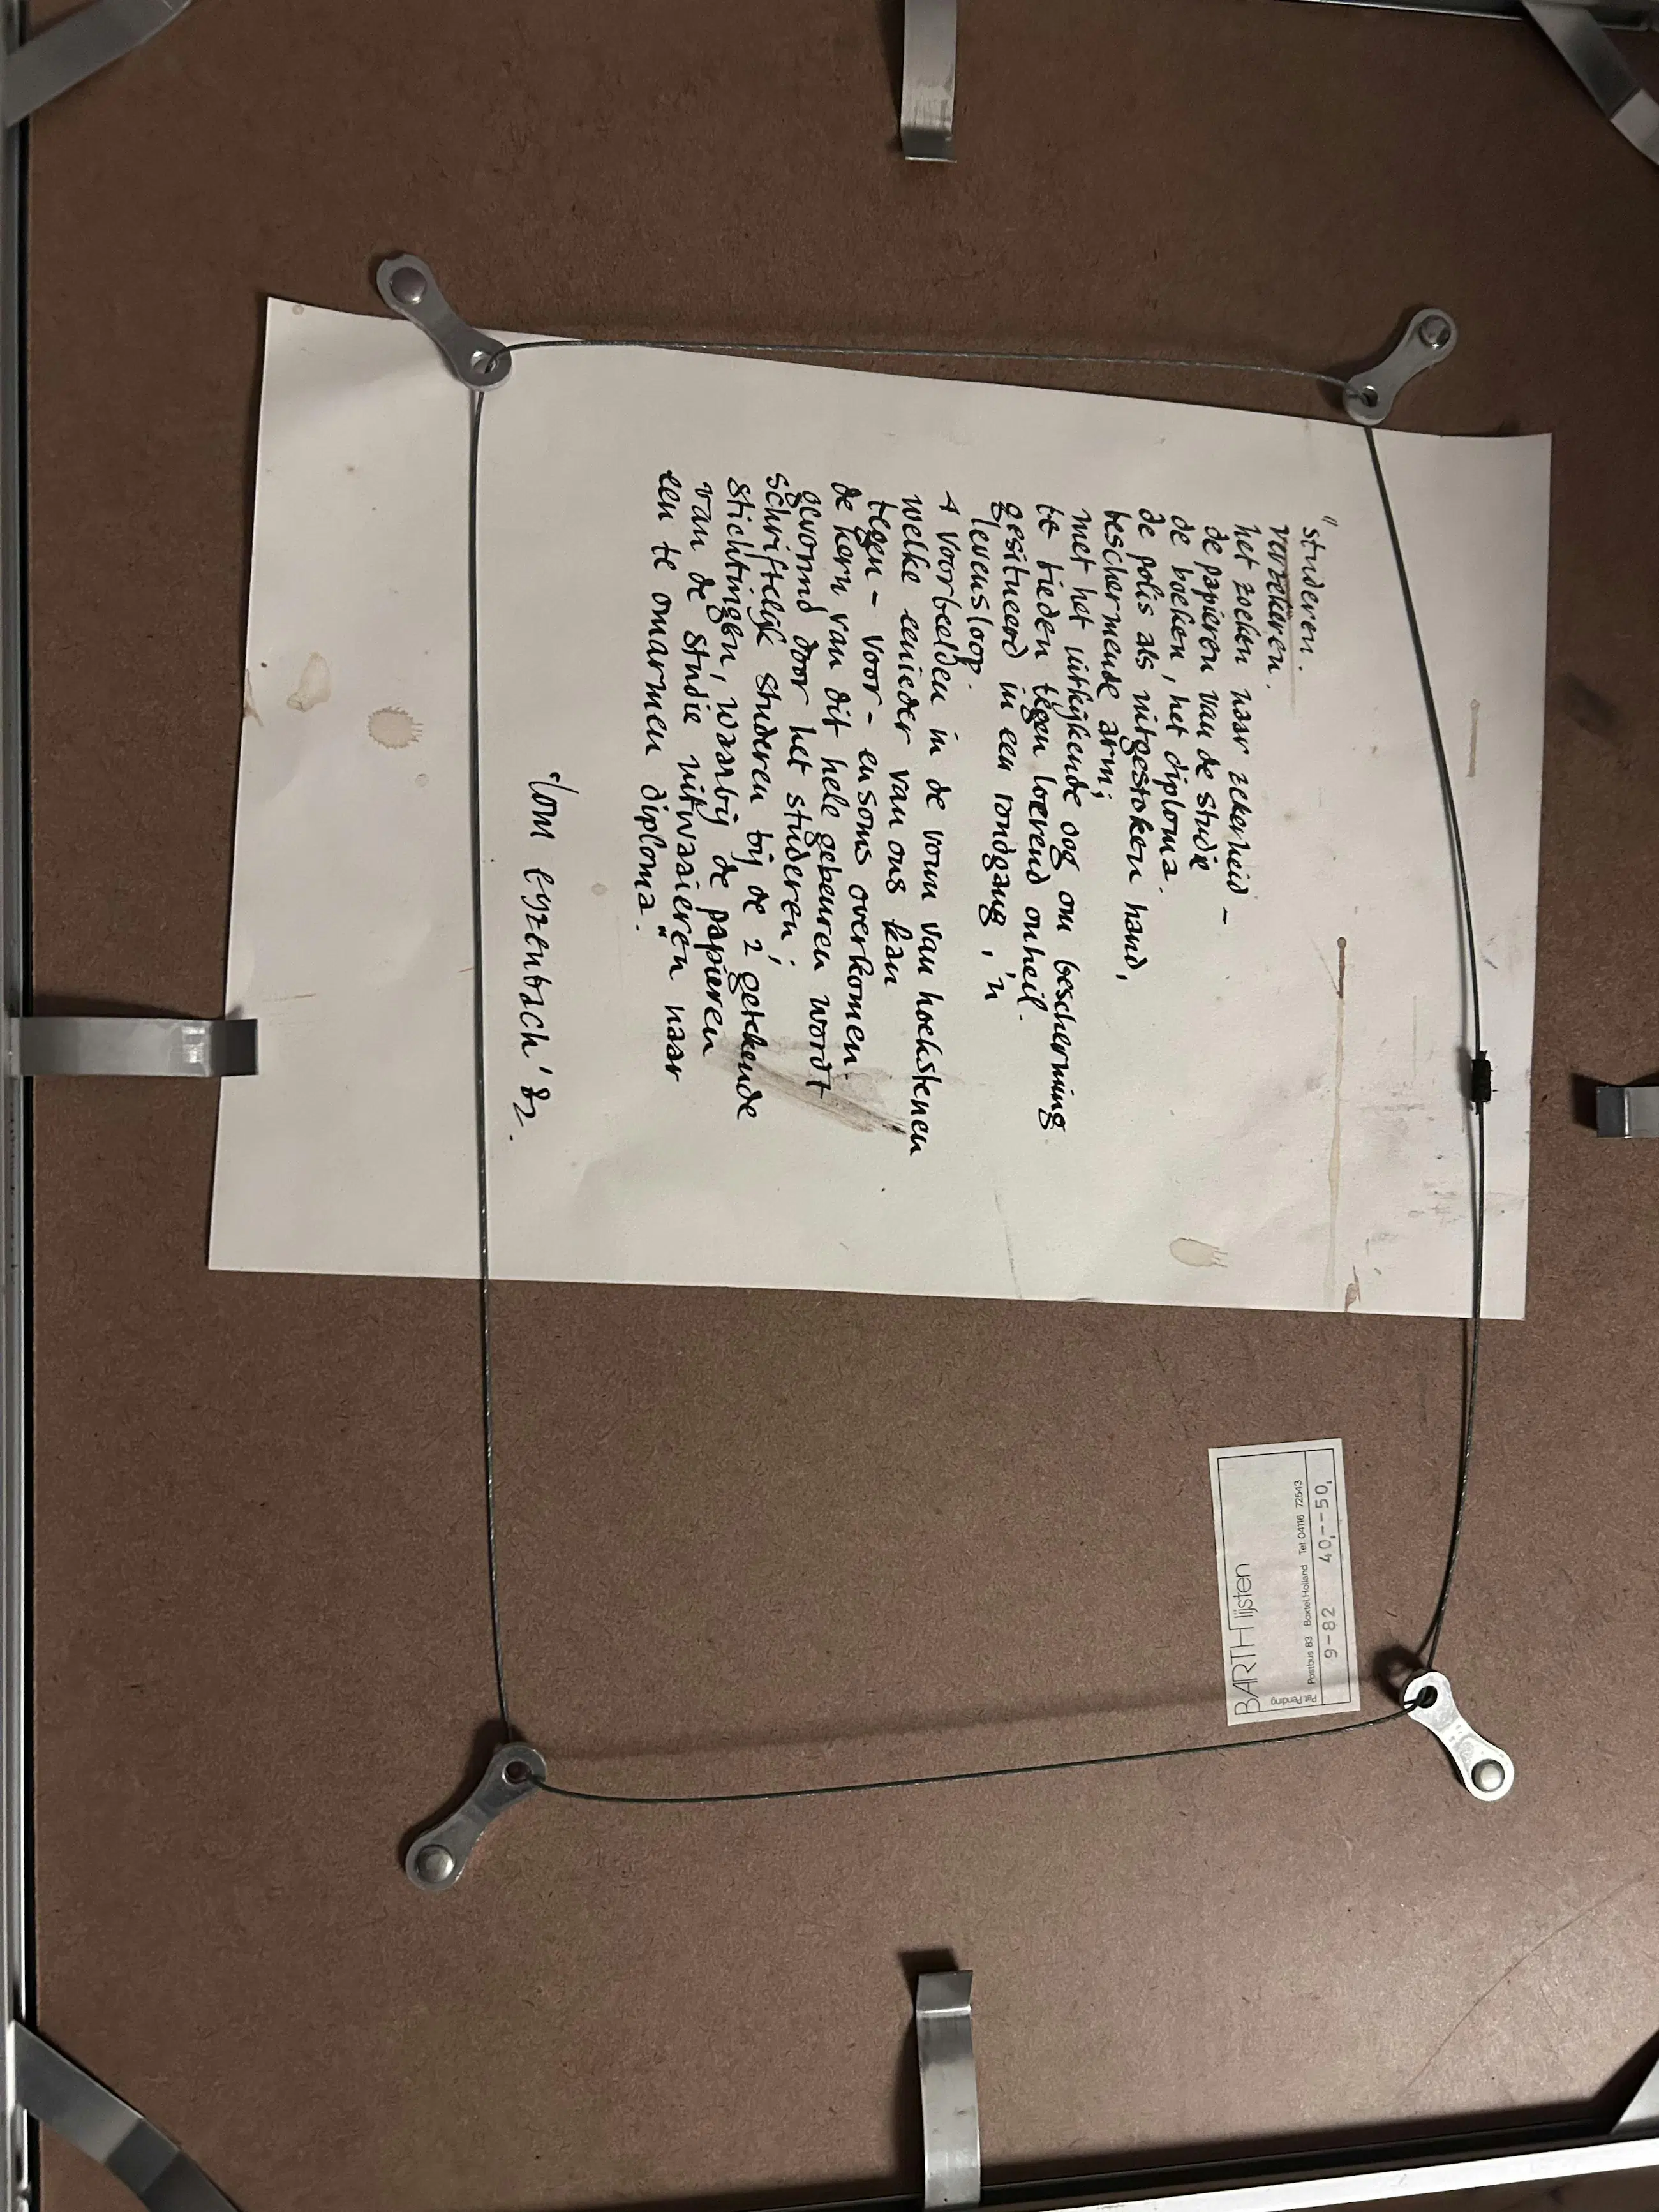 "studeren.
verzekeren.
het zoeken naar zekerheid –
de papieren van de studie
de boeken, het diploma.
de polis als uitgestoken hand,
beschermende arm;
met het uitkijkende oog om bescherming
te bieden tegen loerend onheil.
gesitueerd in een rondgang, 'n
levensloop.
4 voorbeelden in de vorm van hoekstenen
welke eenieder van ons kan
tegen – voor – en soms overkomen.
de kern van dit hele gebeuren wordt
gevormd door het studeren;
schriftelijk studeren bij de 2 getekende
stichtingen, waarbij de papieren
van de studie uitwaaieren naar
een te omarmen diploma."
Tom Eyzenbach '82.
BARTH lijsten
Pat. Pending
Postbus 83 Boxtel Holland Tel. 04116 72543
9-82 40,--50,